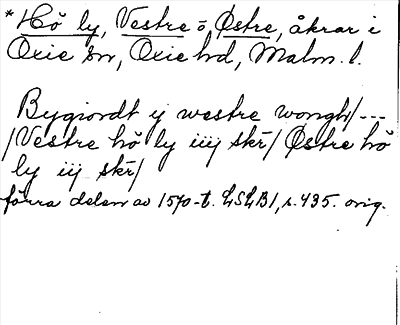 *Hö ly, Vestre o Östre, åkrar i
Oxie sn, Oxie hd, Malm. l.
Bygiordt ij westre wongh/---
/Vestre hö ly iiij skr/ Östre hö
ly iij skr/
förra delen av 1570-t. LSLB1, s. 435. orig.